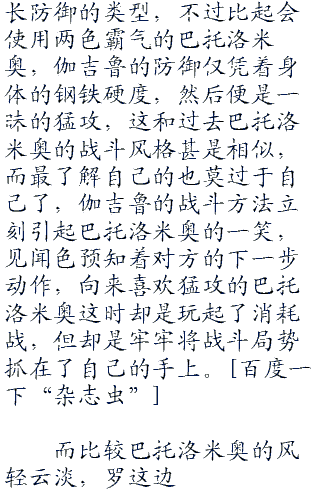 长防御的类型，不过比起会
使用两色霸气的巴托洛米
奥，伽吉鲁的防御仅凭着身
体的钢铁硬度，然后便是一
味的猛攻，这和过去巴托洛
米奥的战斗风格甚是相似，
而最了解自己的也莫过于自
己了，伽吉鲁的战斗方法立
刻引起巴托洛米奥的一笑，
见闻色预知着对方的下一步
动作，向来喜欢猛攻的巴托
洛米奥这时却是玩起了消耗
战，但却是牢牢将战斗局势
抓在了自己的手上。[百度一
下“杂志虫”]
而比较巴托洛米奥的风
轻云淡，罗这边